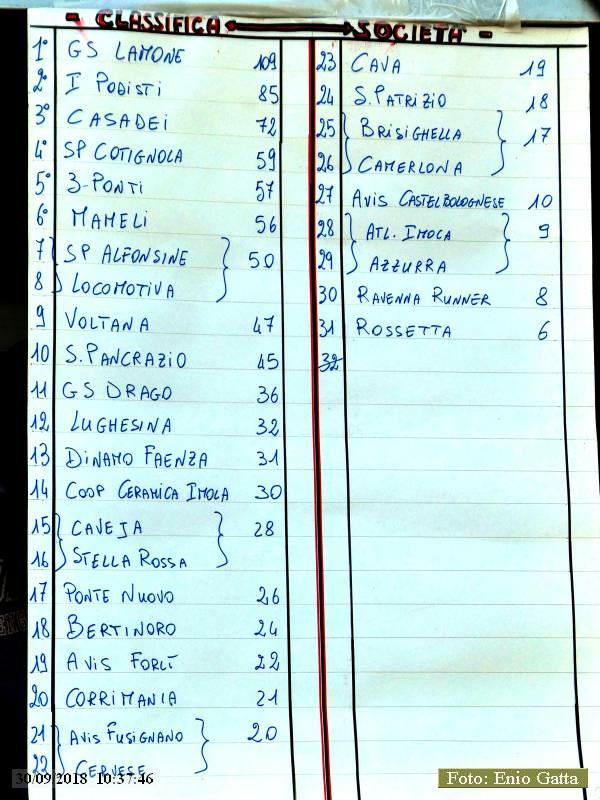 - CLASSIFICA SOCIETÀ -
1° GS LAMONE 109
2° I PODISTI 85
3° CASADEI 72
4° SP COTIGNOLA 59
5° 3-PONTI 57
6° MAMELI 56
7 SP ALFONSINE 50
8 LOCOMOTIVA
9 VOLTANA 47
10 S.PANCRAZIO 45
11 GS DRAGO 36
12 LUGHESINA 32
13 DINAMO FAENZA 31
14 COOP CERAMICA IMOLA 30
15 CAVEJA 28
16 STELLA ROSSA
17 PONTE NUOVO 26
18 BERTINORO 24
19 AVIS FORLÌ 22
20 CORRIMANIA 21
21 AVIS FUSIGNANO 20
22 CERVESE
23 CAVA 19
24 S.PATRIZIO 18
25 BRISIGHELLA 17
26 CAMERLONA
27 AVIS CASTELBOLOGNESE 10
28 ATL. IMOLA 9
29 AZZURRA
30 RAVENNA RUNNER 8
31 ROSSETTA 6
32
30/09/2018 10:37:46
Foto: Enio Gatta